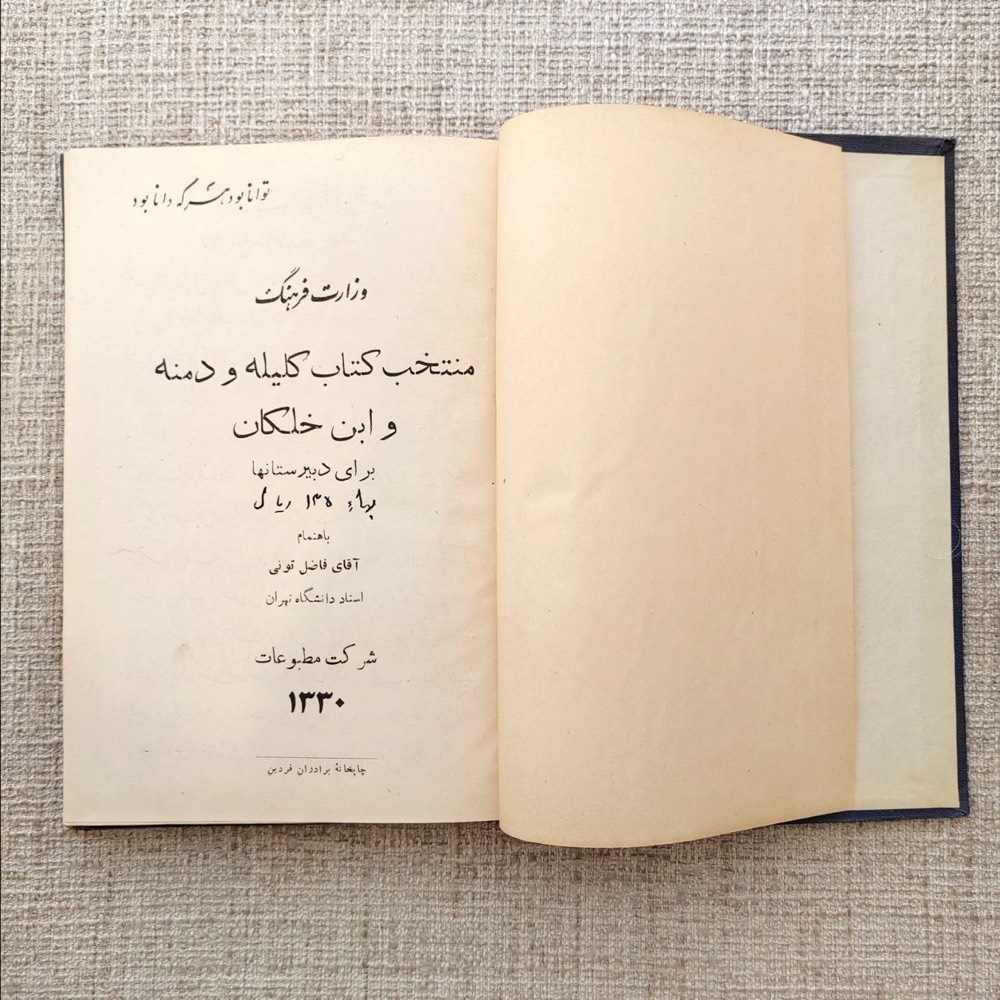 توانا بود هر که دانا بود
وزارت فرهنگ
منتخب کتاب کلیله و دمنه
و ابن خلکان
برای دبیرستانها
بهاء ۱۳۵ ریال
باهتمام
آقای فاضل تونی
استاد دانشگاه تهران
شرکت مطبوعات
۱۳۳۰
چاپخانهٔ برادران فردین